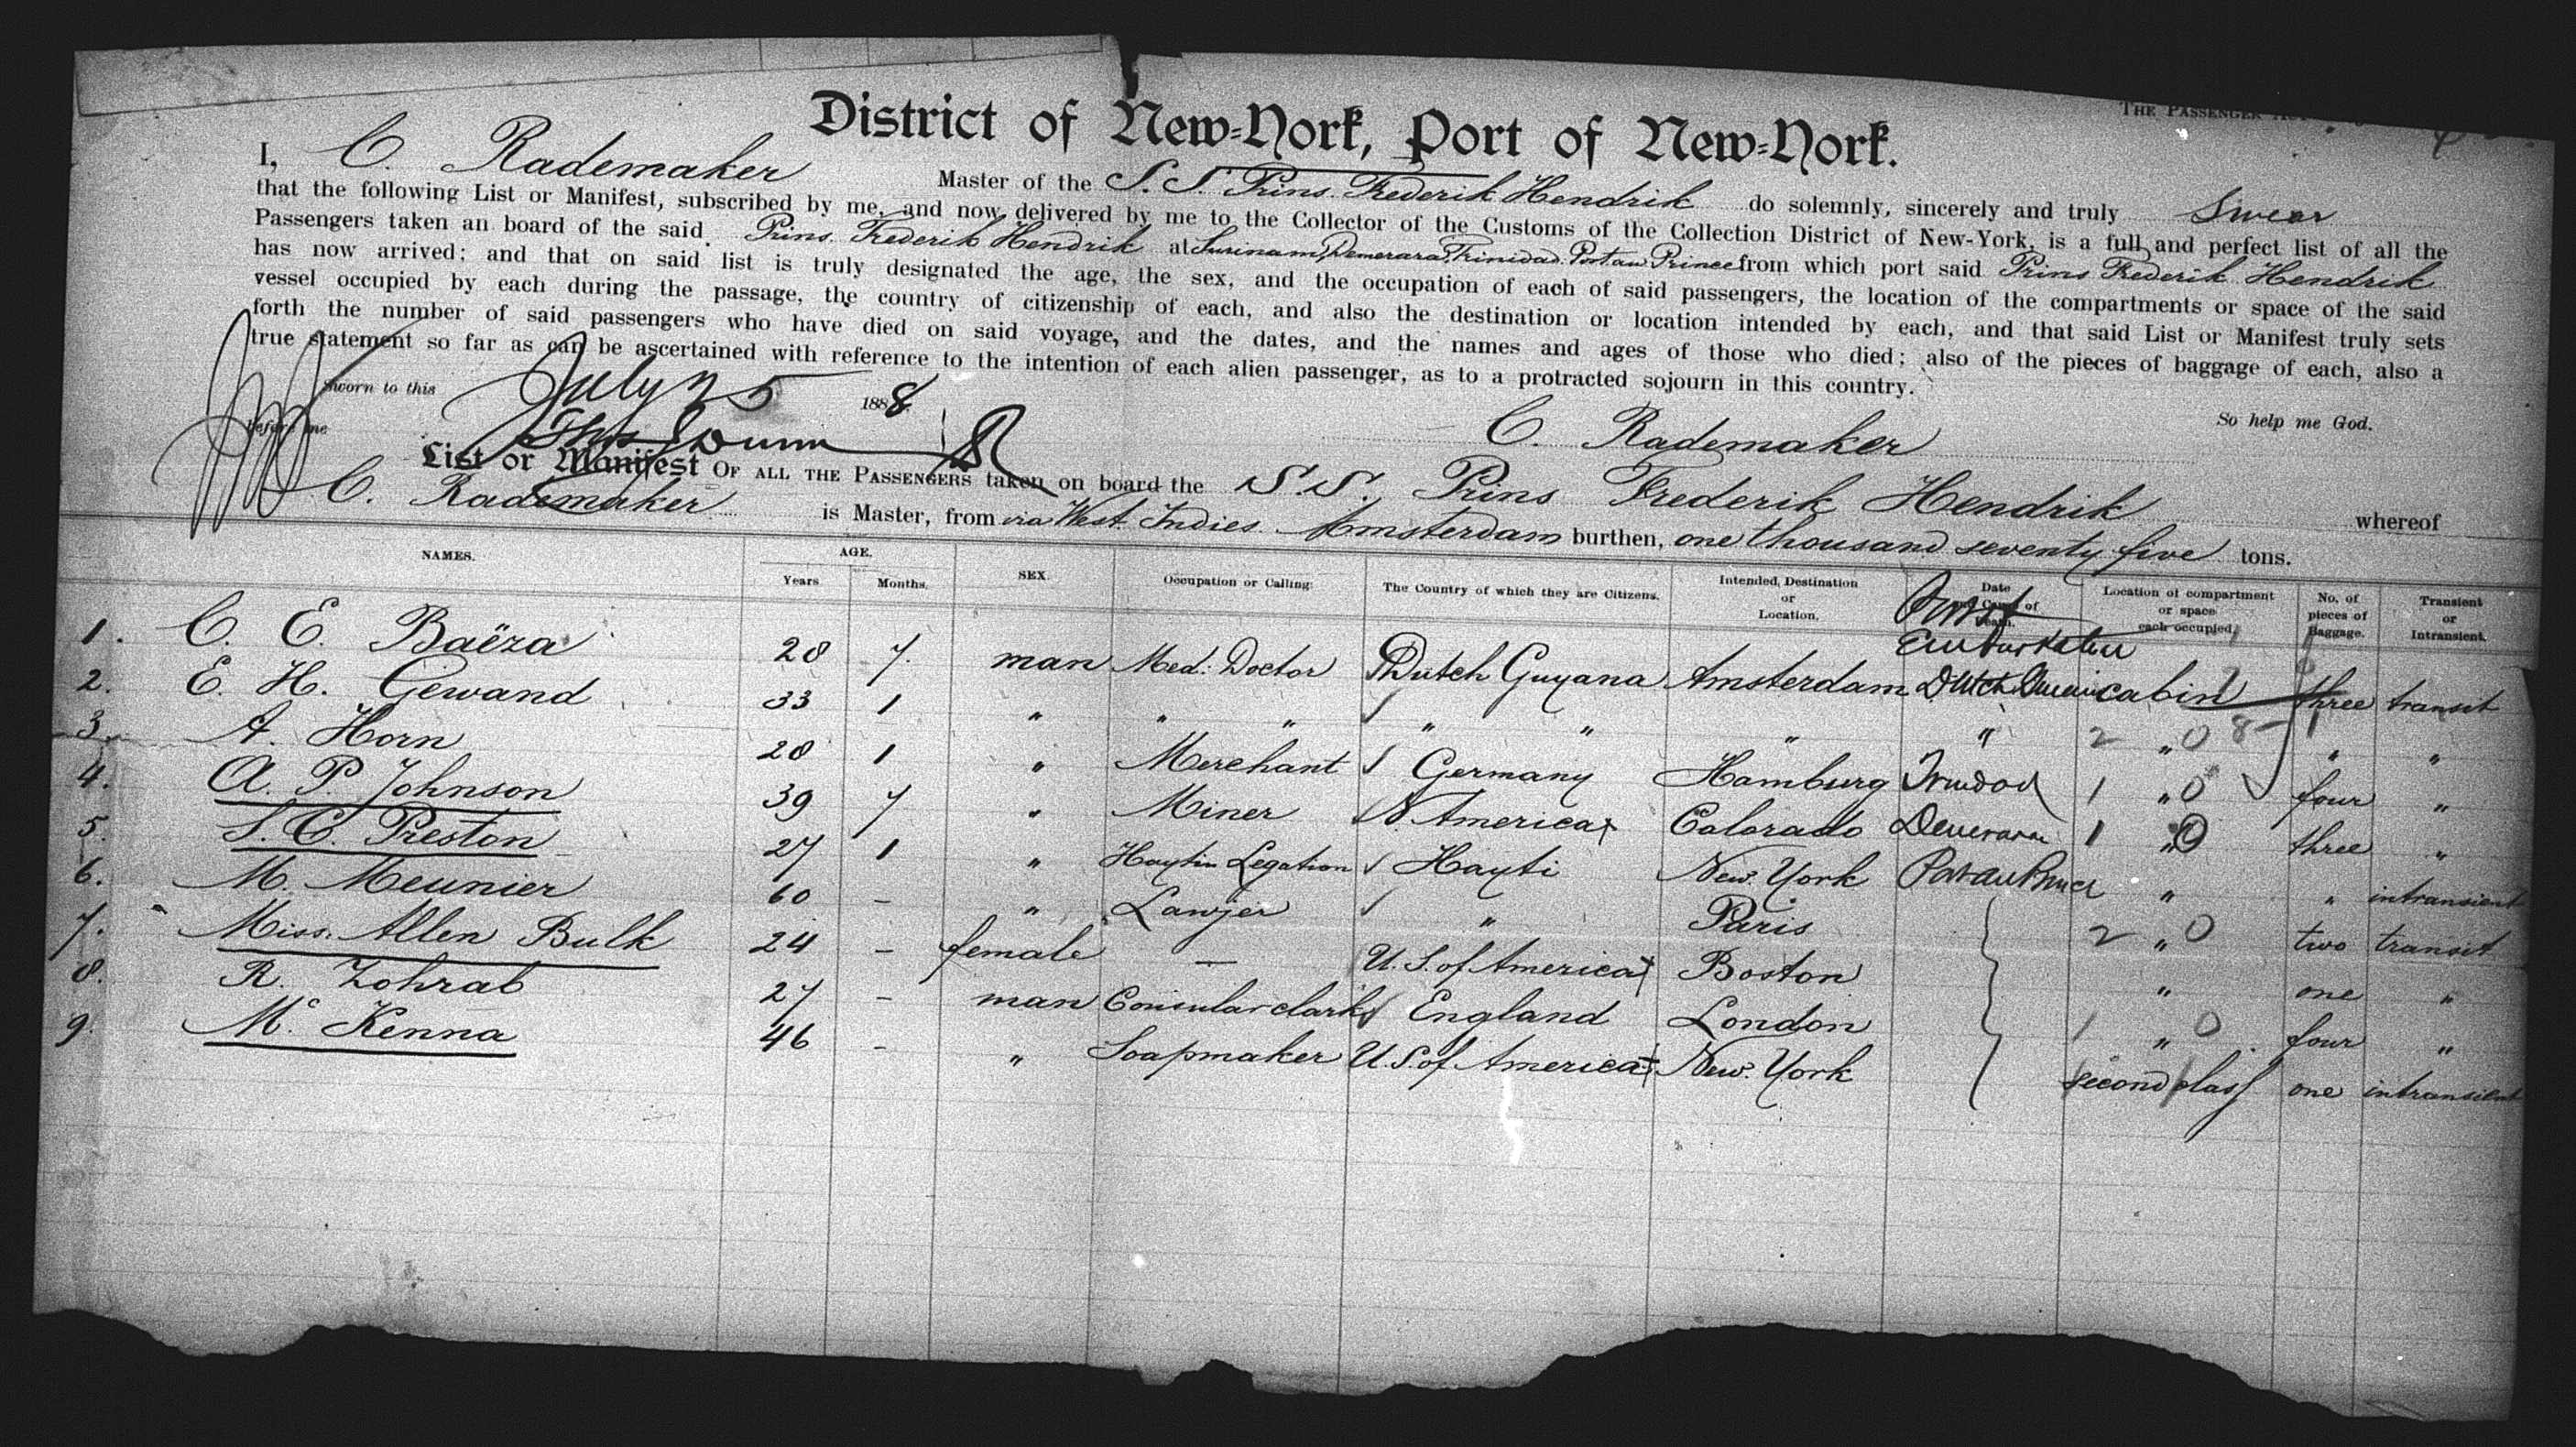 THE PASSENGER ACT
District of New-York, Port of New-York.
I, C. Rademaker Master of the S. S. Prins Frederik Hendrik do solemnly, sincerely and truly Swear
that the following List or Manifest, subscribed by me, and now delivered by me to the Collector of the Customs of the Collection District of New-York, is a full and perfect list of all the
Passengers taken an board of the said Prins Frederik Hendrik at Surinam, Demerara, Trinidad. Port au Prince from which port said Prins Frederik Hendrik
has now arrived; and that on said list is truly designated the age, the sex, and the occupation of each of said passengers, the location of the compartments or space of the said
vessel occupied by each during the passage, the country of citizenship of each, and also the destination or location intended by each, and that said List or Manifest truly sets
forth the number of said passengers who have died on said voyage, and the dates, and the names and ages of those who died; also of the pieces of baggage of each, also a
true statement so far as can be ascertained with reference to the intention of each alien passenger, as to a protracted sojourn in this country.
Sworn to this July 25 1888
So help me God.
before me
C. Rademaker
List or Manifest OF ALL THE PASSENGERS taken on board the S.S. Prins Frederik Hendrik whereof
C. Rademaker is Master, from via West Indies Amsterdam burthen, one thousand seventy five tons.
NAMES. AGE. Years Months. SEX. Occupation or Calling. The Country of which they are Citizens. Intended, Destination or Location. Date and Cause of Death. Location of compartment or space each occupied. No. of pieces of Baggage. Transient or Intransient.
Port Embarkation
1. C. E. Baëza 28 7. man Med: Doctor Dutch Guyana Amsterdam Dutch cabin three transit
2. E. H. Gewand 33 1 " " " " " " " 2 " 0 " "
3. A. Horn 28 1 " Merchant Germany Hamburg Trinidad 1 " 0 four "
4. A. P. Johnson 39 7 " Miner N. America Colorado Demerara 1 " 0 three "
5. S. C. Preston 27 1 " Haytin Legation Hayti New. York Port au Prince " " intransient
6. M. Meunier 60 - " Lawjer " Paris 2 " 0 two transit
7. Miss. Allen Bulk 24 - female - U. S. of America Boston " one "
8. R. Zohrab 27 - man Consular clark England London 1 " 0 four "
9. Mc Kenna 46 - " Soapmaker U.S. of America New. York second class one intransient